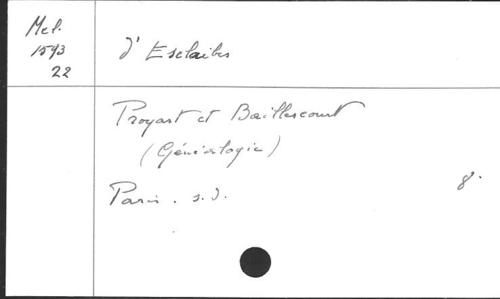 Mel.
1593
22
d'Esclaibes
Proyart et Baillescourt
(Généalogie)
Paris. s.d.
8°